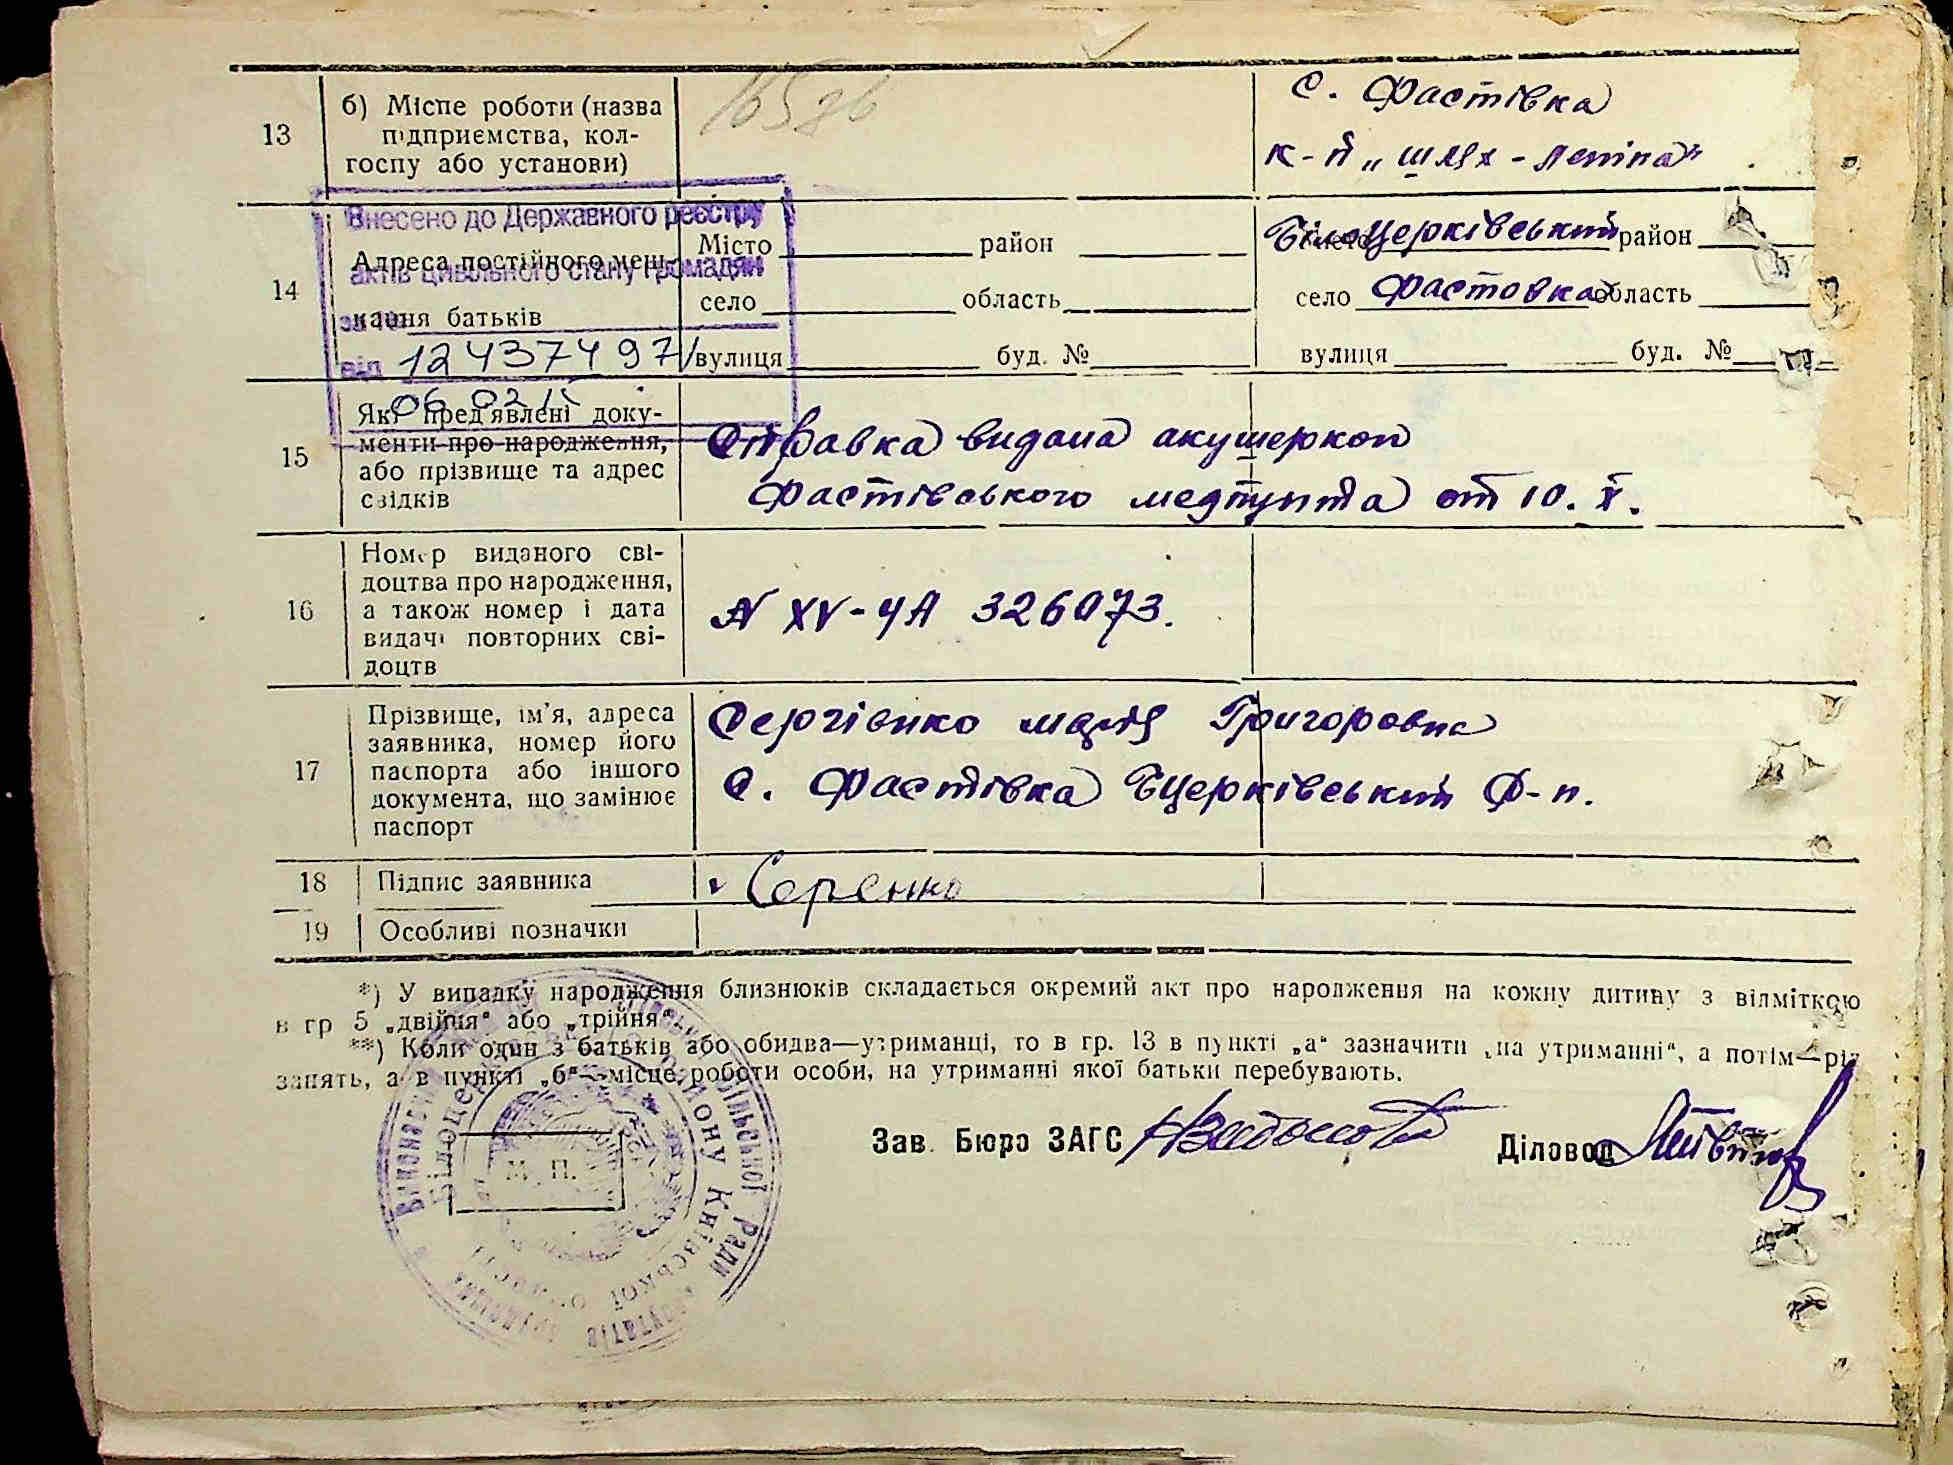 13
б) Місце роботи (назва
підприємства, кол-
госпу або установи)
с. Фастівка
к-п „шлях - леніна"
Внесено до Державного реєстру
актів цивільного стану громадян
за №
12437497
від
06 02
14
Адреса постійного меш-
кання батьків
Місто район
село область
вулиця буд. №
Білоцерківський район
село Фастовка область
вулиця буд. №
15
Які пред'явлені доку-
менти про народження,
або прізвище та адрес
свідків
Справка видана акушеркоп
Фастівського медпупта от 10. X.
16
Номер виданого сві-
доцтва про народження,
а також номер і дата
видачі повторних сві-
доцтв
N XV-ЧА 326073.
17
Прізвище, ім'я, адреса
заявника, номер його
паспорта або іншого
документа, що замінює
паспорт
Сергієнко марія Григоровна
с. Фастівка Бцерківський р-н.
18
Підпис заявника
Серенко
19
Особливі позначки
*) У випадку народження близнюків складається окремий акт про народження на кожну дитину з відміткою
в гр 5 „двійня" або „трійня".
**) Коли один з батьків або обидва—утриманці, то в гр. 13 в пункті „а" зазначити „на утриманні", а потім—рід
занять, а в пункті „б"—місце роботи особи, на утриманні якої батьки перебувають.
Зав. Бюро ЗАГС
Діловод
М. П.